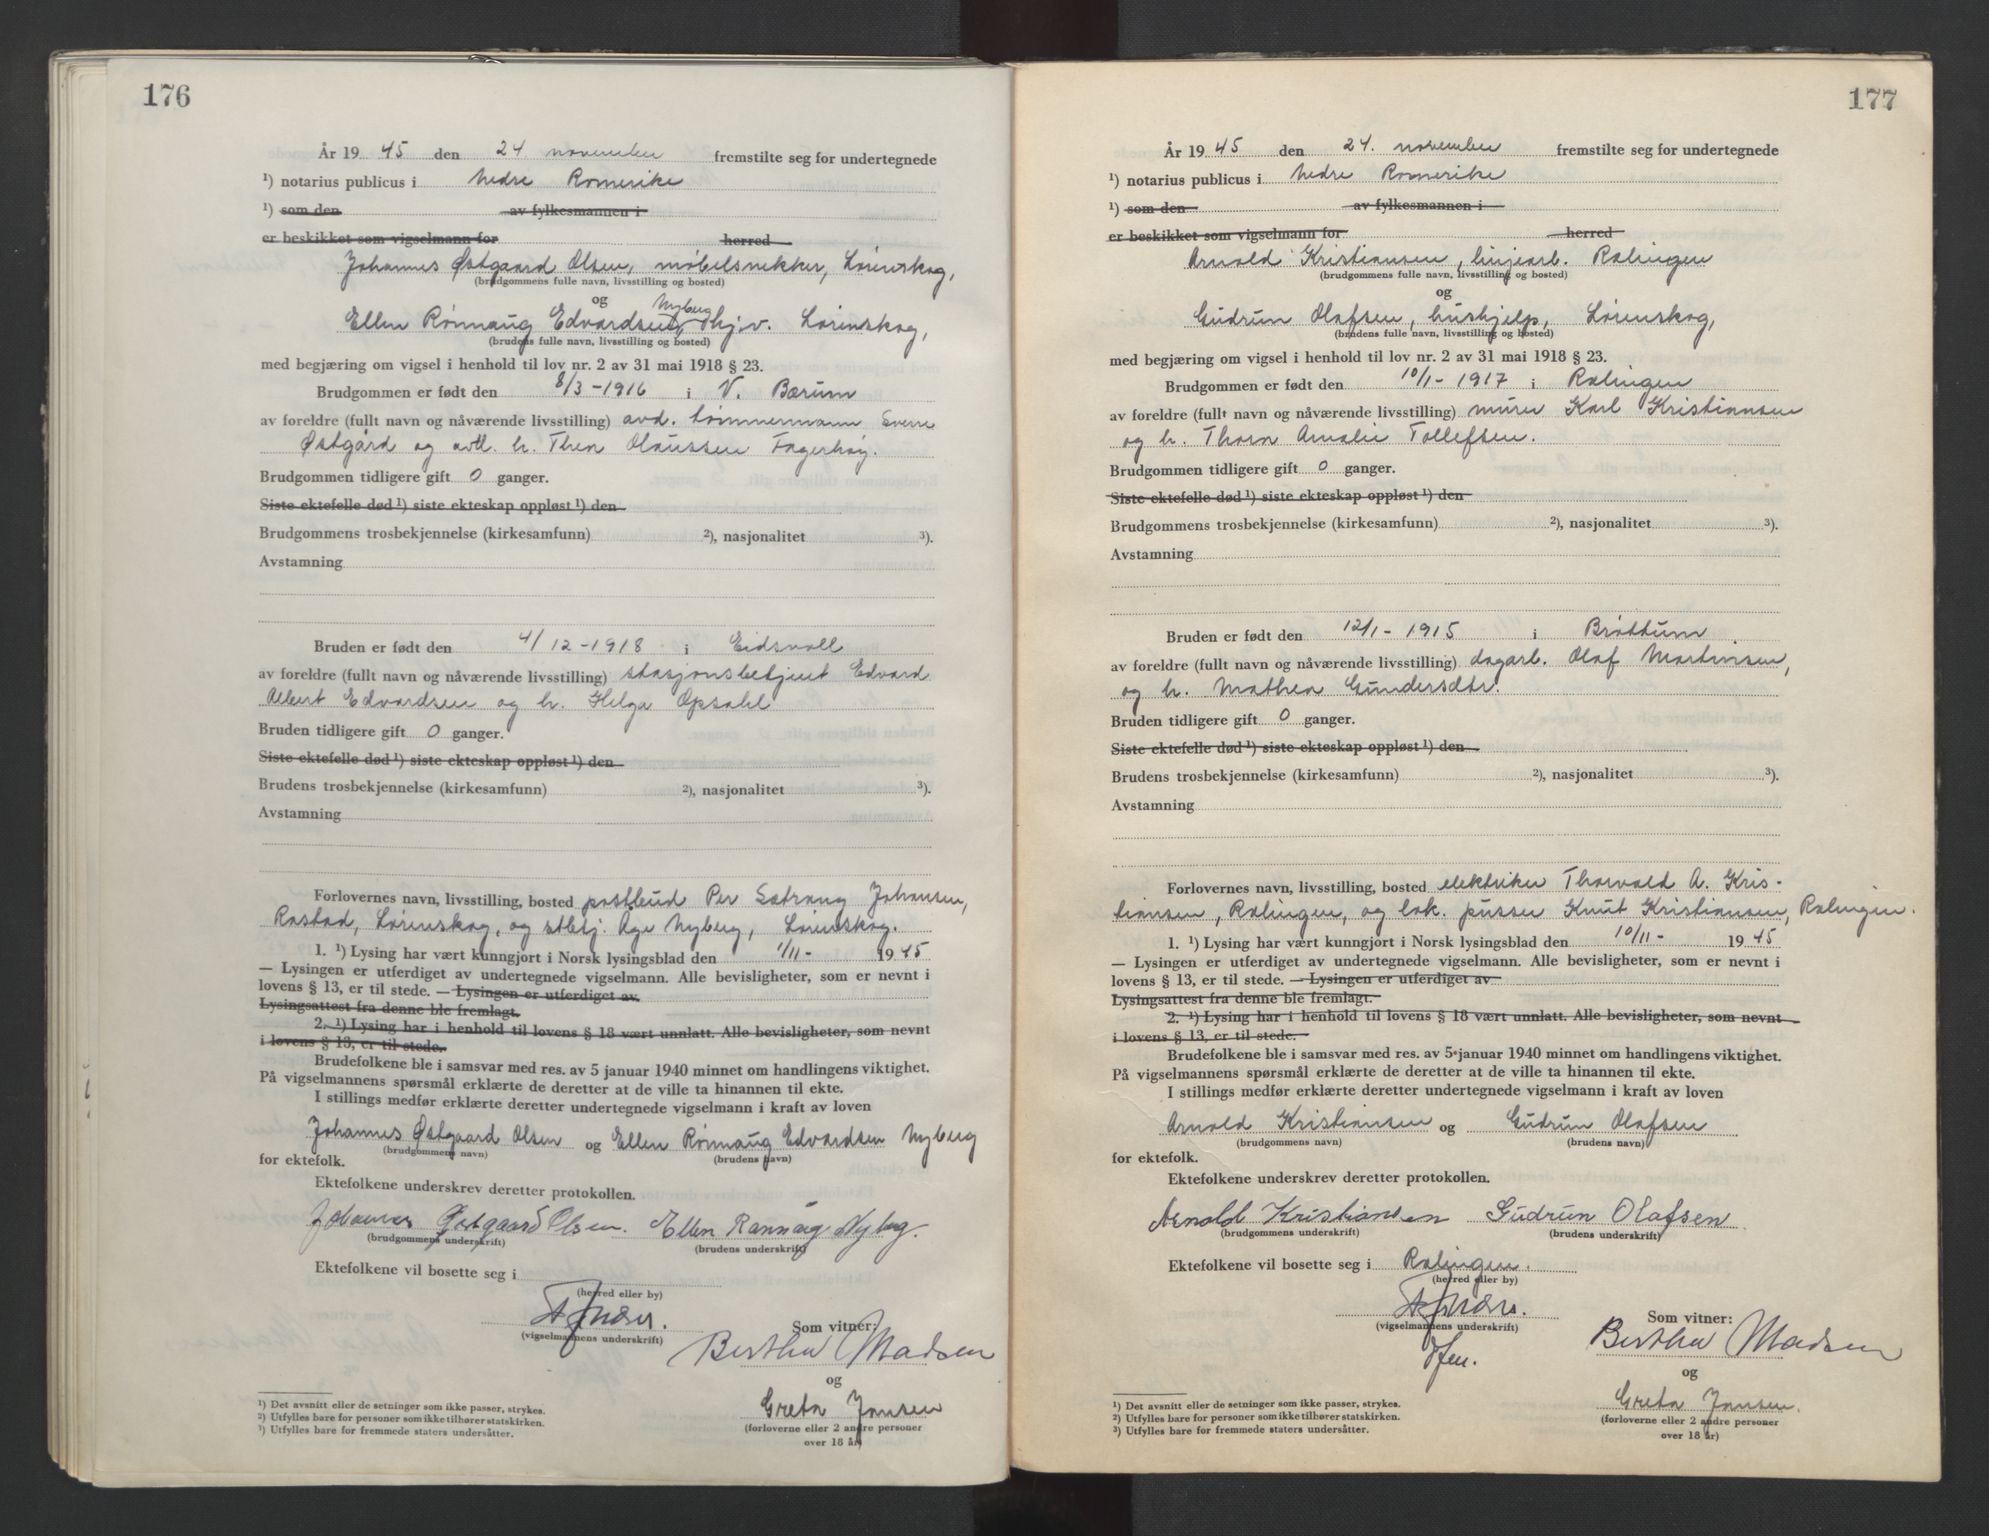 176
År 19 45 den 24 november fremstilte seg for undertegnede
¹) notarius publicus i Nedre Romerike
¹) som den av fylkesmannen i
er beskikket som vigselmann for herred
Johannes Østgaard Olsen, møbelsnekker, Lørenskog,
(brudgommens fulle navn, livsstilling og bosted)
og
Nyberg
Ellen Rønnaug Edvardsen, hj.v. Lørenskog,
(brudens fulle navn, livsstilling og bosted)
med begjæring om vigsel i henhold til lov nr. 2 av 31 mai 1918 § 23.
Brudgommen er født den 8/3-1916 i V. Bærum
av foreldre (fullt navn og nåværende livsstilling) avd. tømmermann Sverre
Østgård og avd. h. Thea Olaussen Fagerhøy.
Brudgommen tidligere gift 0 ganger.
Siste ektefelle død ¹) siste ekteskap oppløst ¹) den
Brudgommens trosbekjennelse (kirkesamfunn) ²), nasjonalitet ³).
Avstamning
Bruden er født den 4/12-1918 i Eidsvoll
av foreldre (fullt navn og nåværende livsstilling) stasjonsbetjent Edvard
Albert Edvardsen og h. Helga Opsahl
Bruden tidligere gift 0 ganger.
Siste ektefelle død ¹) siste ekteskap oppløst ¹) den
Brudens trosbekjennelse (kirkesamfunn) ²), nasjonalitet ³).
Avstamning
Forlovernes navn, livsstilling, bosted postbud Per Sætrang Johansen,
Rastad, Lørenskog, og stbtj. Åge Nyberg, Lørenskog.
1. ¹) Lysing har vært kunngjort i Norsk lysingsblad den 1/11- 1945
— Lysingen er utferdiget av undertegnede vigselmann. Alle bevisligheter, som er nevnt i
lovens § 13, er til stede. — Lysingen er utferdiget av
Lysingsattest fra denne ble fremlagt.
2. ¹) Lysing har i henhold til lovens § 18 vært unnlatt. Alle bevisligheter, som nevnt
i lovens § 13, er til stede.
Brudefolkene ble i samsvar med res. av 5 januar 1940 minnet om handlingens viktighet.
På vigselmannens spørsmål erklærte de deretter at de ville ta hinannen til ekte.
I stillings medfør erklærte deretter undertegnede vigselmann i kraft av loven
Johannes Østgaard Olsen og Ellen Rønnaug Edvardsen Nyberg
(brudgommens navn) (brudens navn)
for ektefolk.
Ektefolkene underskrev deretter protokollen.
Johannes Østgaard Olsen. Ellen Rønnaug Nyberg.
(brudgommens underskrift) (brudens underskrift)
Ektefolkene vil bosette seg i
(herred eller by)
(vigselmannens underskrift)
Som vitner:
Berthe Madsen
og
Greta Jansen
(forloverne eller 2 andre personer
over 18 år)
¹) Det avsnitt eller de setninger som ikke passer, strykes.
²) Utfylles bare for personer som ikke tilhører statskirken.
³) Utfylles bare for fremmede staters undersåtter.
177
År 19 45 den 24. november fremstilte seg for undertegnede
¹) notarius publicus i Nedre Romerike
¹) som den av fylkesmannen i
er beskikket som vigselmann for herred
Arnold Kristiansen, linjearb. Rælingen
(brudgommens fulle navn, livsstilling og bosted)
og
Gudrun Olafsen, hushjelp, Lørenskog,
(brudens fulle navn, livsstilling og bosted)
med begjæring om vigsel i henhold til lov nr. 2 av 31 mai 1918 § 23.
Brudgommen er født den 10/1-1917 i Rælingen
av foreldre (fullt navn og nåværende livsstilling) murer Karl Kristiansen
og h. Thora Amalie Tollefsen.
Brudgommen tidligere gift 0 ganger.
Siste ektefelle død ¹) siste ekteskap oppløst ¹) den
Brudgommens trosbekjennelse (kirkesamfunn) ²), nasjonalitet ³).
Avstamning
Bruden er født den 12/1-1915 i Brøttum.
av foreldre (fullt navn og nåværende livsstilling) dagarb. Olaf Martinsen,
og h. Mathea Gundersdtr.
Bruden tidligere gift 0 ganger.
Siste ektefelle død ¹) siste ekteskap oppløst ¹) den
Brudens trosbekjennelse (kirkesamfunn) ²), nasjonalitet ³).
Avstamning
Forlovernes navn, livsstilling, bosted elektriker Thorvald A. Kris-
tiansen, Rælingen, og lok. pusser Knut Kristiansen, Rælingen.
1. ¹) Lysing har vært kunngjort i Norsk lysingsblad den 10/11- 1945
— Lysingen er utferdiget av undertegnede vigselmann. Alle bevisligheter, som er nevnt i
lovens § 13, er til stede. — Lysingen er utferdiget av
Lysingsattest fra denne ble fremlagt.
2. ¹) Lysing har i henhold til lovens § 18 vært unnlatt. Alle bevisligheter, som nevnt
i lovens § 13, er til stede.
Brudefolkene ble i samsvar med res. av 5 januar 1940 minnet om handlingens viktighet.
På vigselmannens spørsmål erklærte de deretter at de ville ta hinannen til ekte.
I stillings medfør erklærte deretter undertegnede vigselmann i kraft av loven
Arnold Kristiansen og Gudrun Olafsen
(brudgommens navn) (brudens navn)
for ektefolk.
Ektefolkene underskrev deretter protokollen.
Arnold Kristiansen Gudrun Olafsen
(brudgommens underskrift) (brudens underskrift)
Ektefolkene vil bosette seg i Rælingen.
(herred eller by)
(vigselmannens underskrift)
Som vitner:
Berthe Madsen
og
Greta Jansen.
(forloverne eller 2 andre personer
over 18 år)
¹) Det avsnitt eller de setninger som ikke passer, strykes.
²) Utfylles bare for personer som ikke tilhører statskirken.
³) Utfylles bare for fremmede staters undersåtter.